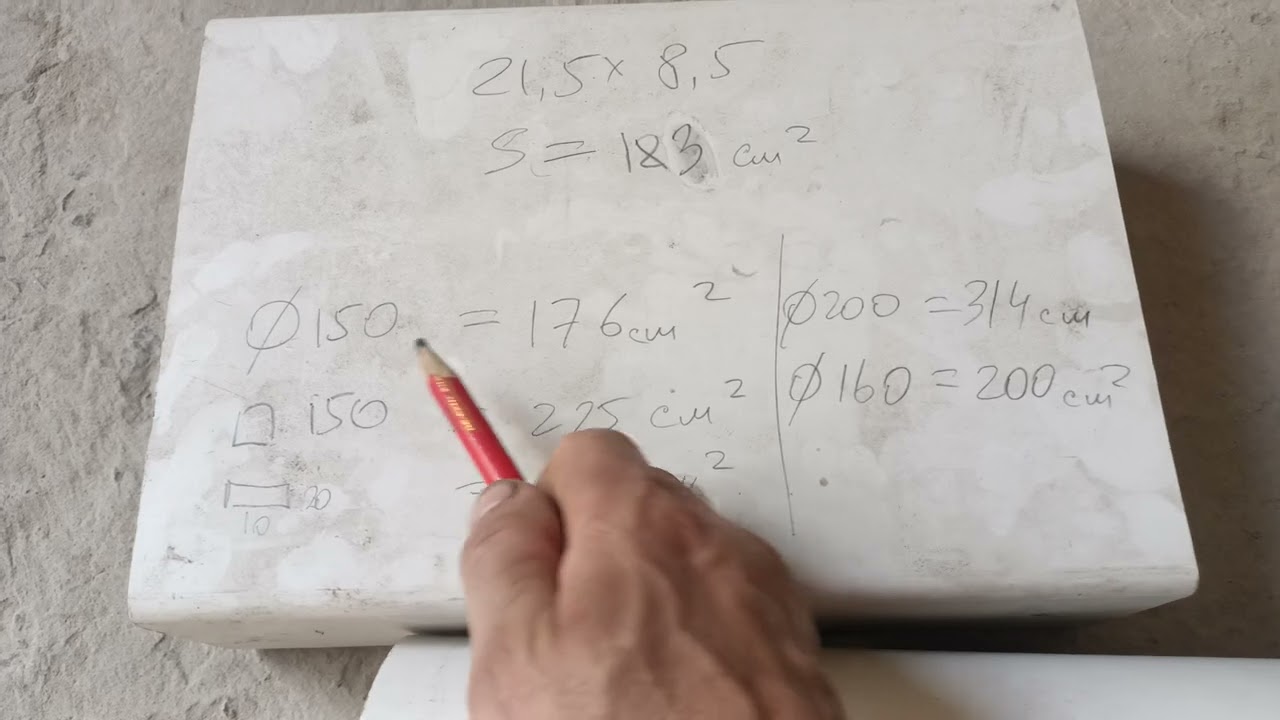 21,5 x 8,5
S = 183 см²
Ø150 = 176 см²
150 = 225 см²
20
10
= ²
Ø200 = 314 см
Ø160 = 200 см²